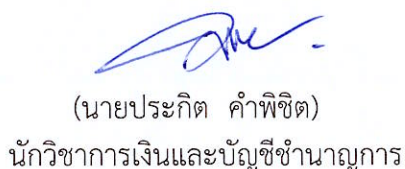 (นายประกิต คำพิชิต)
นักวิชาการเงินและบัญชีชำนาญการ